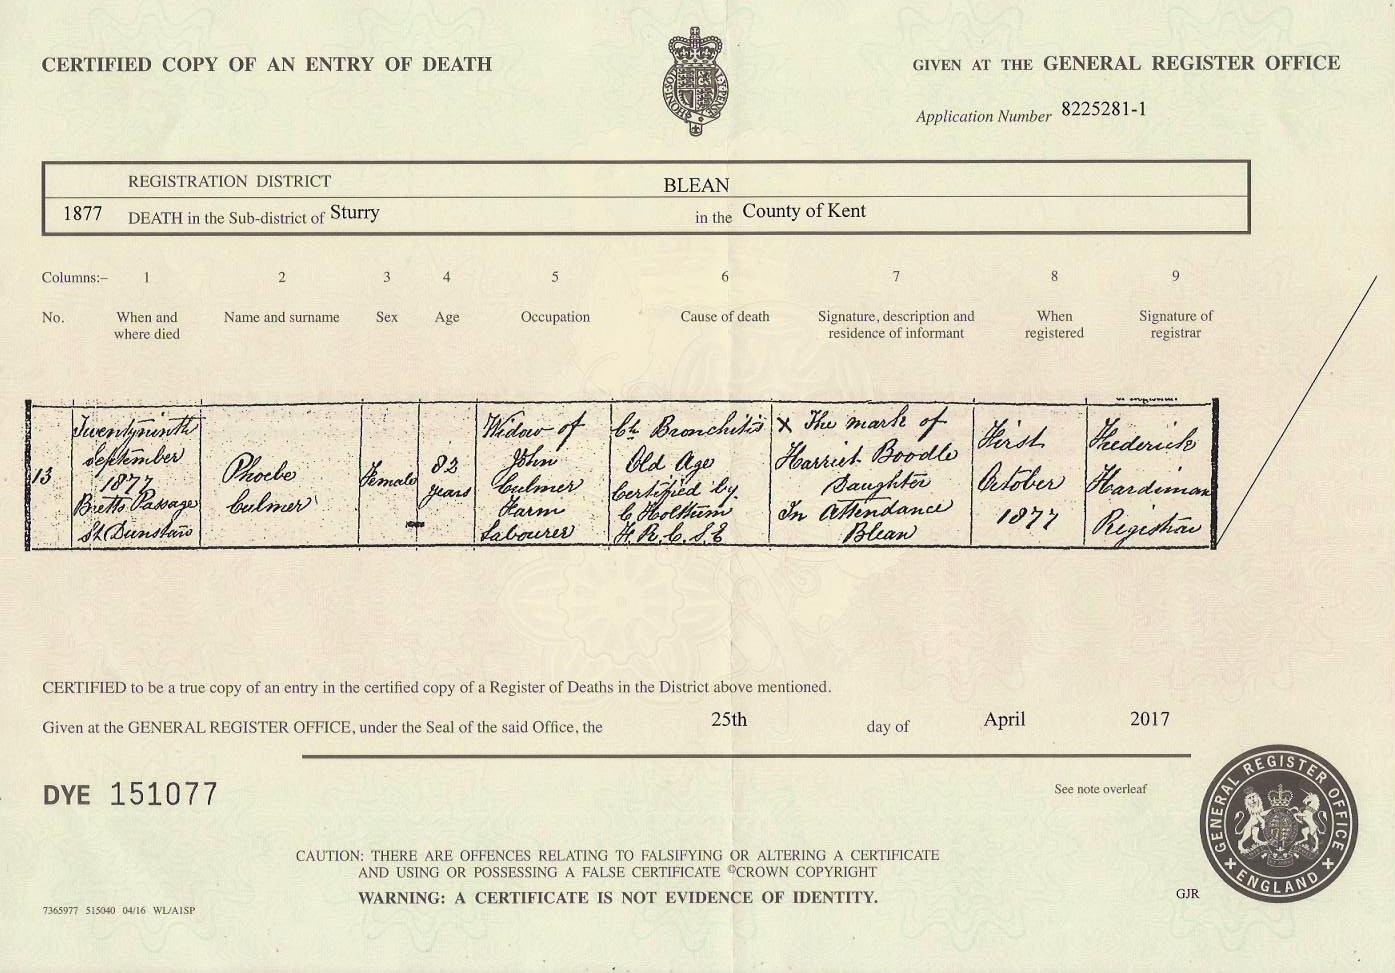 CERTIFIED COPY OF AN ENTRY OF DEATH
GIVEN AT THE GENERAL REGISTER OFFICE
Application Number 8225281-1
REGISTRATION DISTRICT BLEAN
1877 DEATH in the Sub-district of Sturry in the County of Kent
Columns:– 1 2 3 4 5 6 7 8 9
No. When and where died Name and surname Sex Age Occupation Cause of death Signature, description and residence of informant When registered Signature of registrar
13
Twentyninth
September
1877
Bretts Passage
St Dunstans
Phoebe
Culmer
Female
82
years
Widow of
John
Culmer
Farm
Labourer
Ch Bronchitis
Old Age
Certified by
C Holttum
F.R.C.S.E
X The mark of
Harriet Boodle
Daughter
In Attendance
Blean
First
October
1877
Frederick
Hardiman
Registrar
CERTIFIED to be a true copy of an entry in the certified copy of a Register of Deaths in the District above mentioned.
Given at the GENERAL REGISTER OFFICE, under the Seal of the said Office, the 25th day of April 2017
DYE 151077
See note overleaf
GENERAL REGISTER OFFICE
ENGLAND
CAUTION: THERE ARE OFFENCES RELATING TO FALSIFYING OR ALTERING A CERTIFICATE
AND USING OR POSSESSING A FALSE CERTIFICATE ©CROWN COPYRIGHT
WARNING: A CERTIFICATE IS NOT EVIDENCE OF IDENTITY.
GJR
7365977 515040 04/16 WL/A1SP